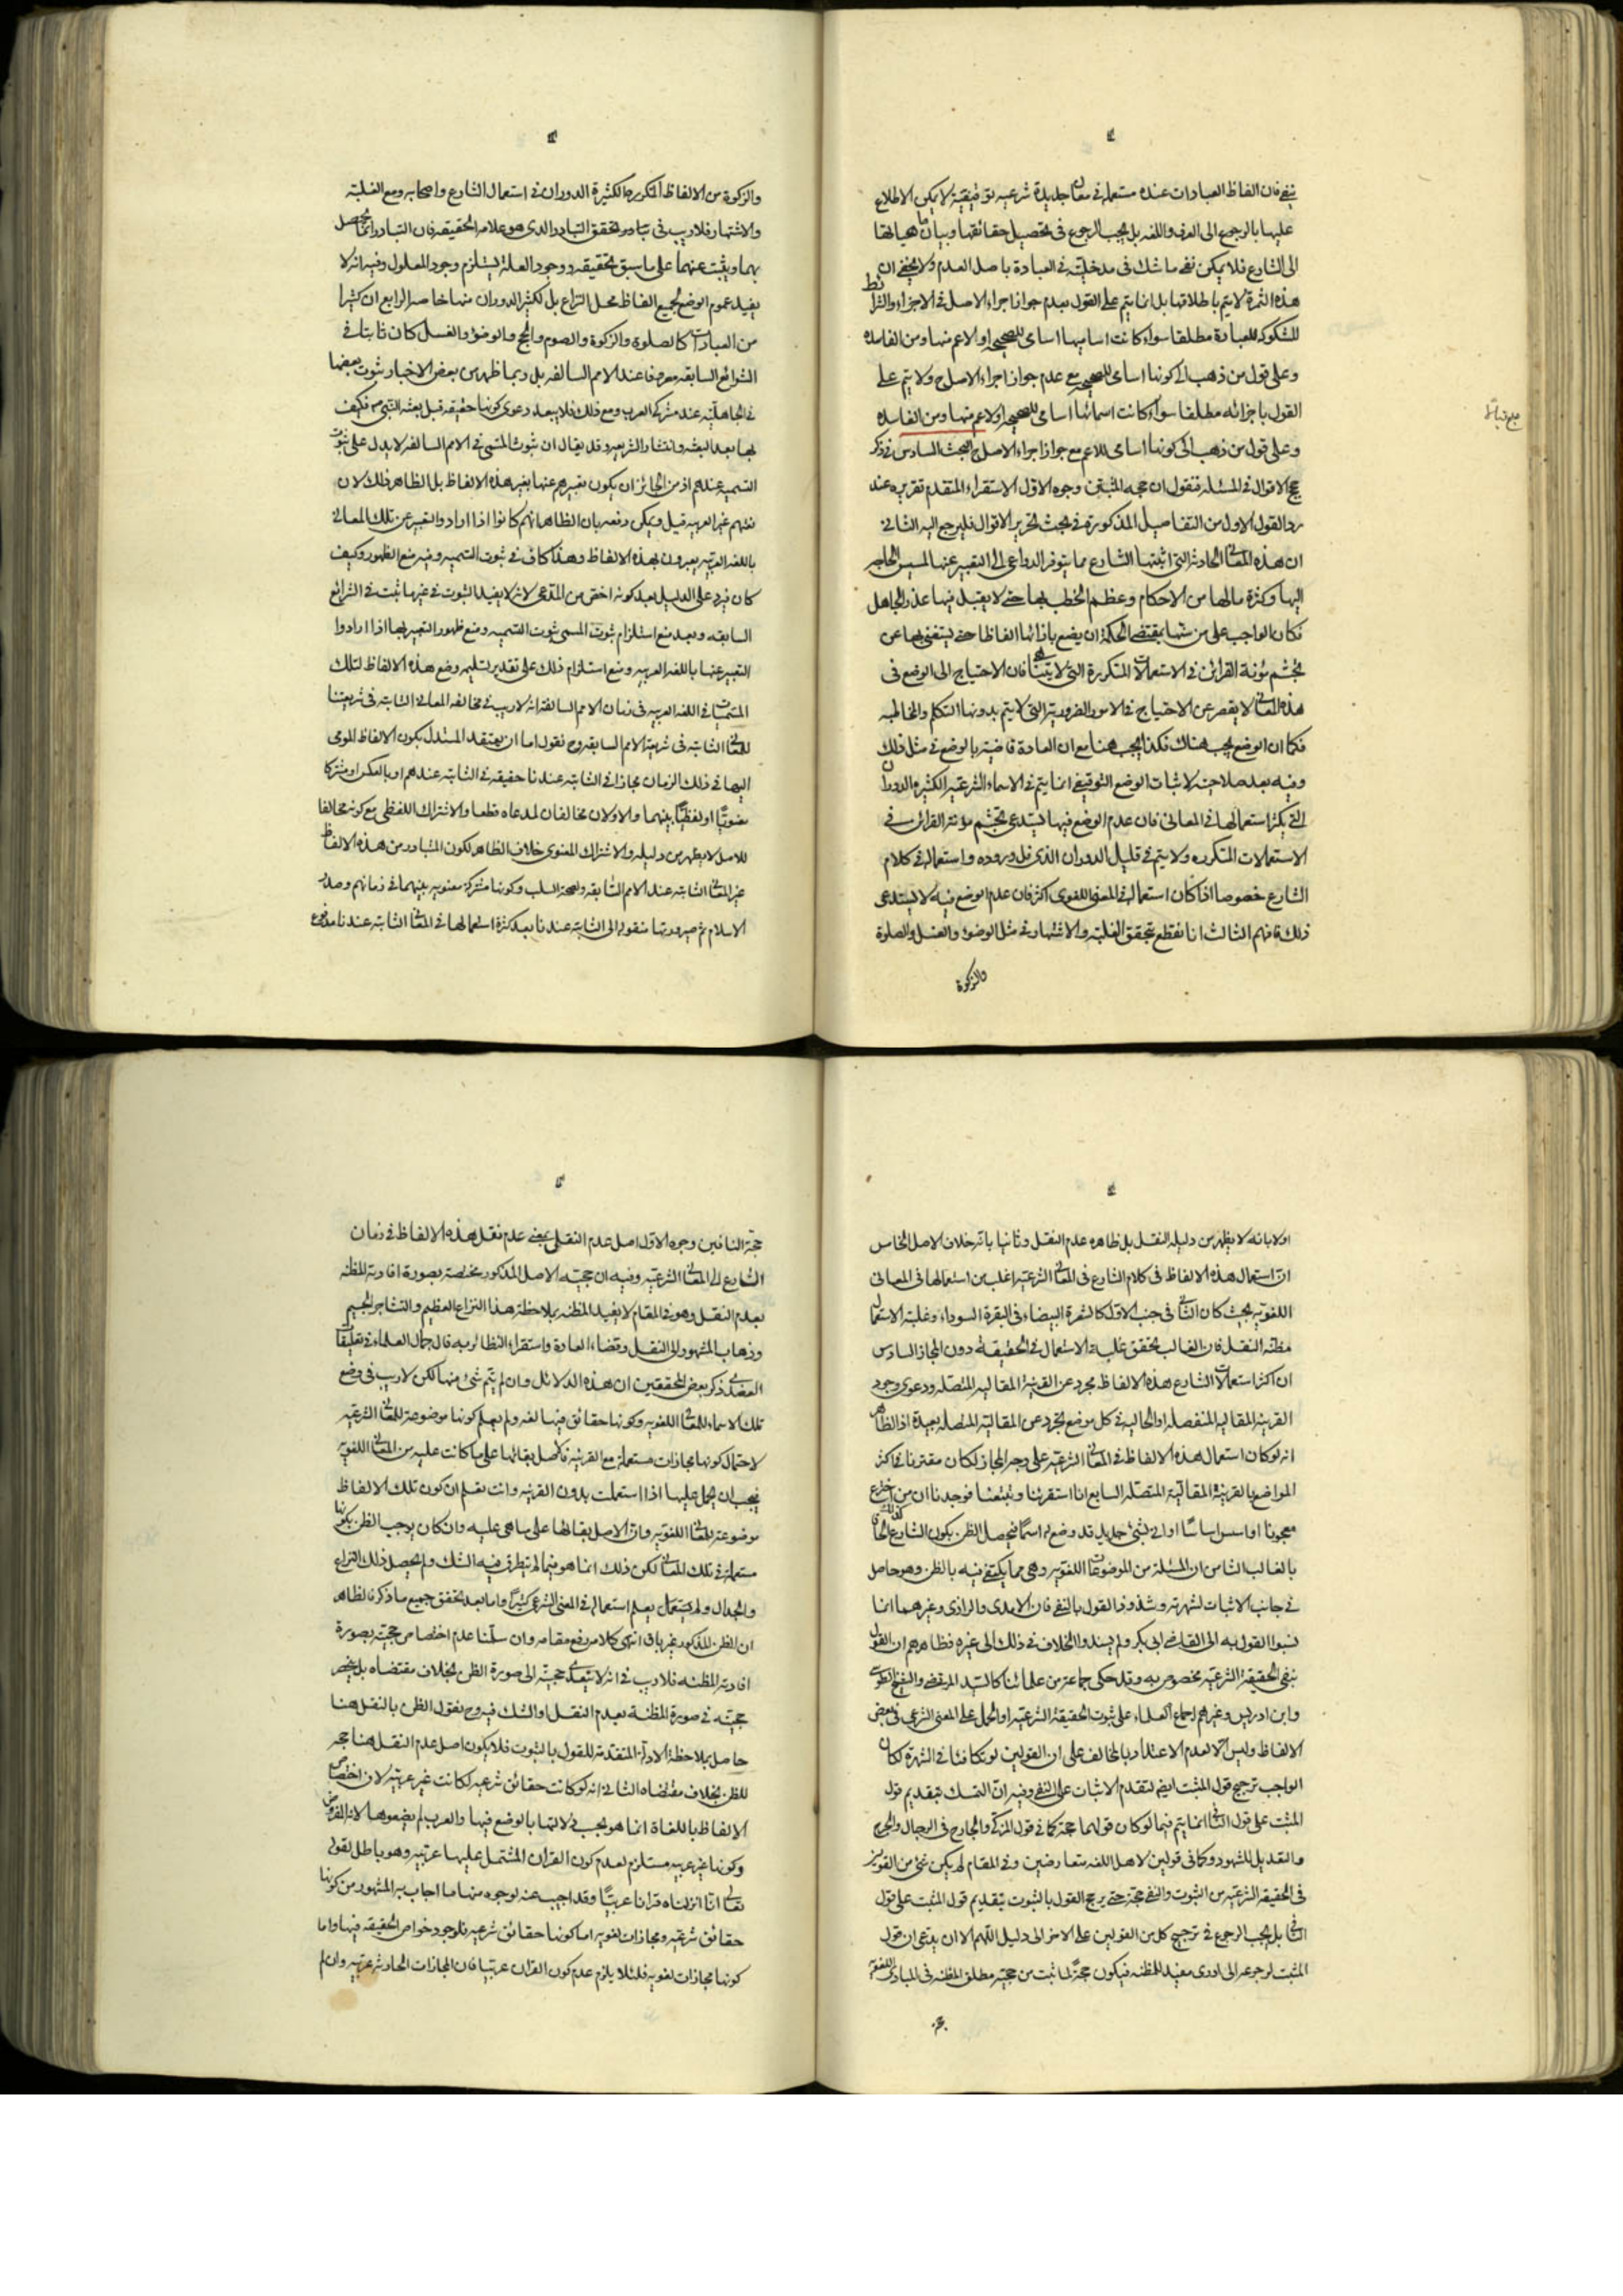 ينفى فان الفاظ العبادات عنده مستعملة فى معان جديدة شرعيه توقيفية لا يمكن الاطلاع
عليها بالرجوع الى العرف واللغه بل يجب الرجوع فى تحصيل حقائقها وبيان ماهياتها
الى الشارع فلا يمكن نفى ما شك فى مدخليته فى العبادة باصل العدم ولا يخفى ان
هذه الثمرة لا يتم باطلاقها بل انما يتم على القول بعدم جواز اجراء الاصل فى الاجزاء والشرائط
المشكوكه للعبادة مطلقا سواء كانت اساميها اسامى للصحيحه او الاعم منها ومن الفاسده
وعلى قول من ذهب الى كونها اسامى للصحيحه مع عدم جواز اجراء الاصل ح ولا يتم على
القول باجرائه مطلقا سواء كانت اسمائها اسامى للصحيحه او لاعم منها ومن الفاسده
وعلى قول من ذهب الى كونها اسامى للاعم مع جواز اجراء الاصل ح البحث السادس فى ذكر
حجج الاقوال فى المسئلة فنقول ان حجه المثبتين وجوه الاول الاستقراء المتقدم تقريره عند
رد القول الاول من التفاصيل المذكورة فى مبحث تحرير الاقوال فليرجع اليه الثانى
ان هذه المعانى الحادثه التى اثبتها الشارع مما يتوفر الدواعى الى التعبير عنها لمسيس الحاجه
اليها وكثرة مالها من الاحكام وعظم الخطب بها حتى لا يقبل فيها عذر الجاهل
فكان الواجب على من بمقتضى الحكمة ان يضع بازائها الفاظا حتى يستغنى بها عن
تجشم مؤنة القرائن فى الاستعمالات المتكررة التى لا يتناهى فان الاحتياج الى الوضع فى
هذه المعانى لا يقصر عن الاحتياج فى الامور الضرورية التى لا يتم بدونها التكلم والمخاطبه
فكما ان الوضع يجب هناك فكذا يجب هنا مع ان العادة قاضية بالوضع فى مثل ذلك
وفيه بعد صلاحيته لاثبات الوضع التوقيفى انما يتم فى الاسماء الشرعيه الكثيره الدوران
التى يكثر استعمالها فى المعانى فان عدم الوضع فيها يستدعى تجشم مؤنة القرائن فى
الاستعمالات المتكرره ولا يتم فى قليل الدوران الذى قل وروده واستعماله فى كلام
الشارع خصوصا اذا كان استعماله فى المعنى اللغوى اكثر فان عدم الوضع فيه لا يستدعى
ذلك فافهم الثالث انا نقطع بتحقق الغلبة والاشتهار فى مثل الوضوء والغسل والصلوة
والزكوة
والزكوة من الالفاظ المتكرره الكثيرة الدوران فى استعمال الشارع واصحابه ومع الغلبة
والاشتهار فلا ريب فى تبادر وتحقق التبادر الذى هو علامه الحقيقه فان التبادر انما يحصل
بهما ويثبت عنهما على ما سبق تحقيقه ووجود العلة يستلزم وجود المعلول وفيه انه لا
يفيد عموم الوضع لجميع الفاظ محل النزاع بل لكثير الدوران منها خاصه الرابع ان كثيرا
من العبادات كالصلوة والزكوة والصوم والحج والوضوء والغسل كان ثابتا فى
الشرائع السابقه معروفا عند الامم السالفه بل ربما ظهر من بعض الاخبار ثبوت بعضها
فى الجاهلية عند مشركى العرب ومع ذلك فلا يبعد دعوى كونها حقيقه قبل بعثه النبى ص فكيف
بها بعد البعثه وانتشار الشريعه وقد يقال ان ثبوت المسمى فى الامم السالفه لا يدل على ثبوت
التسميه عندهم اذ من الجائز ان يكون تعبيرهم عنها بغير هذه الالفاظ بل الظاهر ذلك لان
لغتهم غير العربيه قيل ويمكن دفعه بان الظاهر انهم كانوا اذا ارادوا التعبير عن تلك المعانى
باللغه العربيه يعبرون بهذه الالفاظ وهذا كاف فى ثبوت التسميه وفيه منع الظهور وكيف
كان فيرد على الدليل بعد كونه اخص من المدعى لانه لا يفيد الثبوت فى غير ما ثبت فى الشرائع
السابقه وبعد منع استلزام ثبوت المسمى ثبوت التسميه ومنع ظهور التعبير بها اذا ارادوا
التعبير عنها باللغه العربيه ومنع استلزام ذلك على تقدير تسليمه وضع هذه الالفاظ لتلك
المسميات فى اللغه العربيه فى زمان الامم السالفة انه لا ريب فى مخالفه المعانى الثابته فى شريعتنا
للمعانى الثابته فى شريعة الامم السابقه وح نقول اما ان يعتقد المستدل بكون الالفاظ المومى
اليها فى ذلك الزمان مجازا فى الثابته عندنا حقيقه فى الثابته عندهم او بالعكس او مشتركا
معنويا او لفظيا بينهما والاولان مخالفان لمدعاه قطعا والاشتراك اللفظى مع كونه مخالفا
للاصل لا يظهر من دليله والاشتراك المعنوى خلاف الظاهر لكون المتبادر من هذه الالفاظ
غير المعانى الثابته عند الامم السابقه ولصحة السلب وكونها مشتركة معنويه بينهما فى زمانهم وصدر
الاسلام ثم صيرورتها منقوله الى الثابته عندنا بعد كثرة استعمالها فى المعانى الثابته عندنا مدفوع
اولا بانه لا يظهر من دليله النقل بل ظاهره عدم النقل وثانيا بانه خلاف الاصل الخامس
ان استعمال هذه الالفاظ فى كلام الشارع فى المعانى الشرعيه اغلب من استعمالها فى المعانى
اللغويه بحيث كان الثانى فى جنب الاول كالشعرة البيضاء فى البقرة السوداء وغلبة الاستعمال
مظنه النقل فان الغالب تحقق غلبة الاستعمال فى الحقيقة دون المجاز السادس
ان اكثر استعمالات الشارع هذه الالفاظ مجرد عن القرينة المقاليه المتصله ودعوى وجود
القرينه المقاليه المنفصله او الحاليه فى كل موضع تجرد عن المقاليه المتصله بعيدة اذ الظاهر
انه لو كان استعمال هذه الالفاظ فى المعانى الشرعيه على وجه المجاز لكان مقترنا فى اكثر
المواضع بالقرينة المقالية المتصله السابع انا استقرئنا وتتبعنا فوجدنا ان من اخترع
معجونا او اسس اساسا او اتى بشئ جديد قد وضع له اسما فيحصل الظن بكون الشارع كذلك الحاقا
بالغالب الثامن ان المسئلة من الموضوعات اللغويه وهى مما يكتفى فيه بالظن وهو حاصل
فى جانب الاثبات لشهرته وشذوذ القول بالنفى فان الامدى والرازى وغيرهما انما
نسبوا القول به الى القاضى ابى بكر ولم يسندوا الخلاف فى ذلك الى غيره فظاهرهم ان القول
بنفى الحقيقة الشرعيه مخصوص به وقد حكى جماعة من علمائنا كالسيد المرتضى والشيخ الطوسى
وابن ادريس وغيرهم اجماع العلماء على ثبوت الحقيقة الشرعيه او الحمل على المعنى الشرعى فى بعض
الالفاظ وليس الا لعدم الاعتداد بالمخالف على ان القولين لو تكافئا فى الشهرة لكان
الواجب ترجيح قول المثبت ايضا لتقدم الاثبات على النفى وفيه ان التمسك بتقديم قول
المثبت على قول النافى انما يتم فيما لو كان قولهما حجة كما فى قول المزكى والجارح فى الرجال والجرح
والتعديل للشهود وكما فى قولين لاهل اللغه متعارضين وفى المقام لم يكن شئ من القولين
فى الحقيقه الشرعيه من الثبوت والنفى حجة حتى يرجح القول بالثبوت بتقديم قول المثبت على قول
النافى بل يجب الرجوع فى ترجيح كل من القولين على الاخر الى دليل اللهم الا ان يدعى ان قول
المثبت لرجوعه الى ادرى مفيد للمظنه فيكون حجة لما ثبت من حجيه مطلق المظنه فى المبادى اللغويه
حجة النافين وجوه الاول اصل عدم النقل بمعنى عدم نقل هذه الالفاظ فى زمان
الشارع الى المعانى الشرعيه وفيه ان حجيه الاصل المذكور مختصة بصورة افادته المظنه
بعدم النقل وهو فى المقام لا يفيد المظنه بملاحظة هذا النزاع العظيم والتشاجر الجسيم
وذهاب المشهور الى النقل وقضاء العادة واستقراء النظائر به قال جمال العلماء فى تعليقات
العضدى ذكر بعض المحققين ان هذه الدلائل وان لم يتم شئ منها لكن لا ريب فى وضع
تلك الاسماء للمعانى اللغويه وكونها حقائق فيها لغه ولم يعلم كونها موضوعة للمعانى الشرعيه
لاحتمال كونها مجازات مستعملة مع القرينه فالاصل بقائها على ما كانت عليه من المعانى اللغويه
فيجب ان يحمل عليها اذا استعملت بدون القرينه وانت تعلم ان كون تلك الالفاظ
موضوعة للمعانى اللغويه وان الاصل بقائها على ما هى عليه وان كان يوجب الظن بكونها
مستعملة فى تلك المعانى لكن ذلك انما هو فيما لم يتطرق فيه الشك ولم يحصل ذلك النزاع
والجدال ولم يستعمل بعلم استعماله فى المعنى الشرعى كثيرا واما بعد تحقق جميع ما ذكر فالظاهر
ان الظن المذكور غير باق انتهى كلامه رفع مقامه وان سلمنا عدم اختصاص حجيته بصورة
افادته المظنه فلا ريب فى انه لا يتعدى حجيته الى صورة الظن بخلاف مقتضاه بل يختص
حجيته فى صورة المظنة بعدم النقل او الشك فيه وح نقول الظن بالنقل هنا
حاصل بملاحظة الادلة المتقدمة للقول بالثبوت فلا يكون اصل عدم النقل هنا حجه
للظن بخلاف مقتضاه الثانى انه لو كانت حقائق شرعيه لكانت غير عربيه لان اختصاص
الالفاظ باللغات انما هو بحسب دلالتها بالوضع فيها والعرب لم يضعوها لانه المفروض
وكونها غير عربيه مستلزم لعدم كون القران المشتمل عليها عربيه وهو باطل لقوله
تعالى انا انزلناه قرانا عربيا وقد اجيب عنه لوجوه منها ما اجاب به المشهور من كونها
حقائق شرعيه ومجازات لغويه اما كونها حقائق شرعيه فلوجود خواص الحقيقه فيها واما
كونها مجازات لغويه فلئلا يلزم عدم كون القران عربيا فان المجازات الحادثه عربيه وان لم